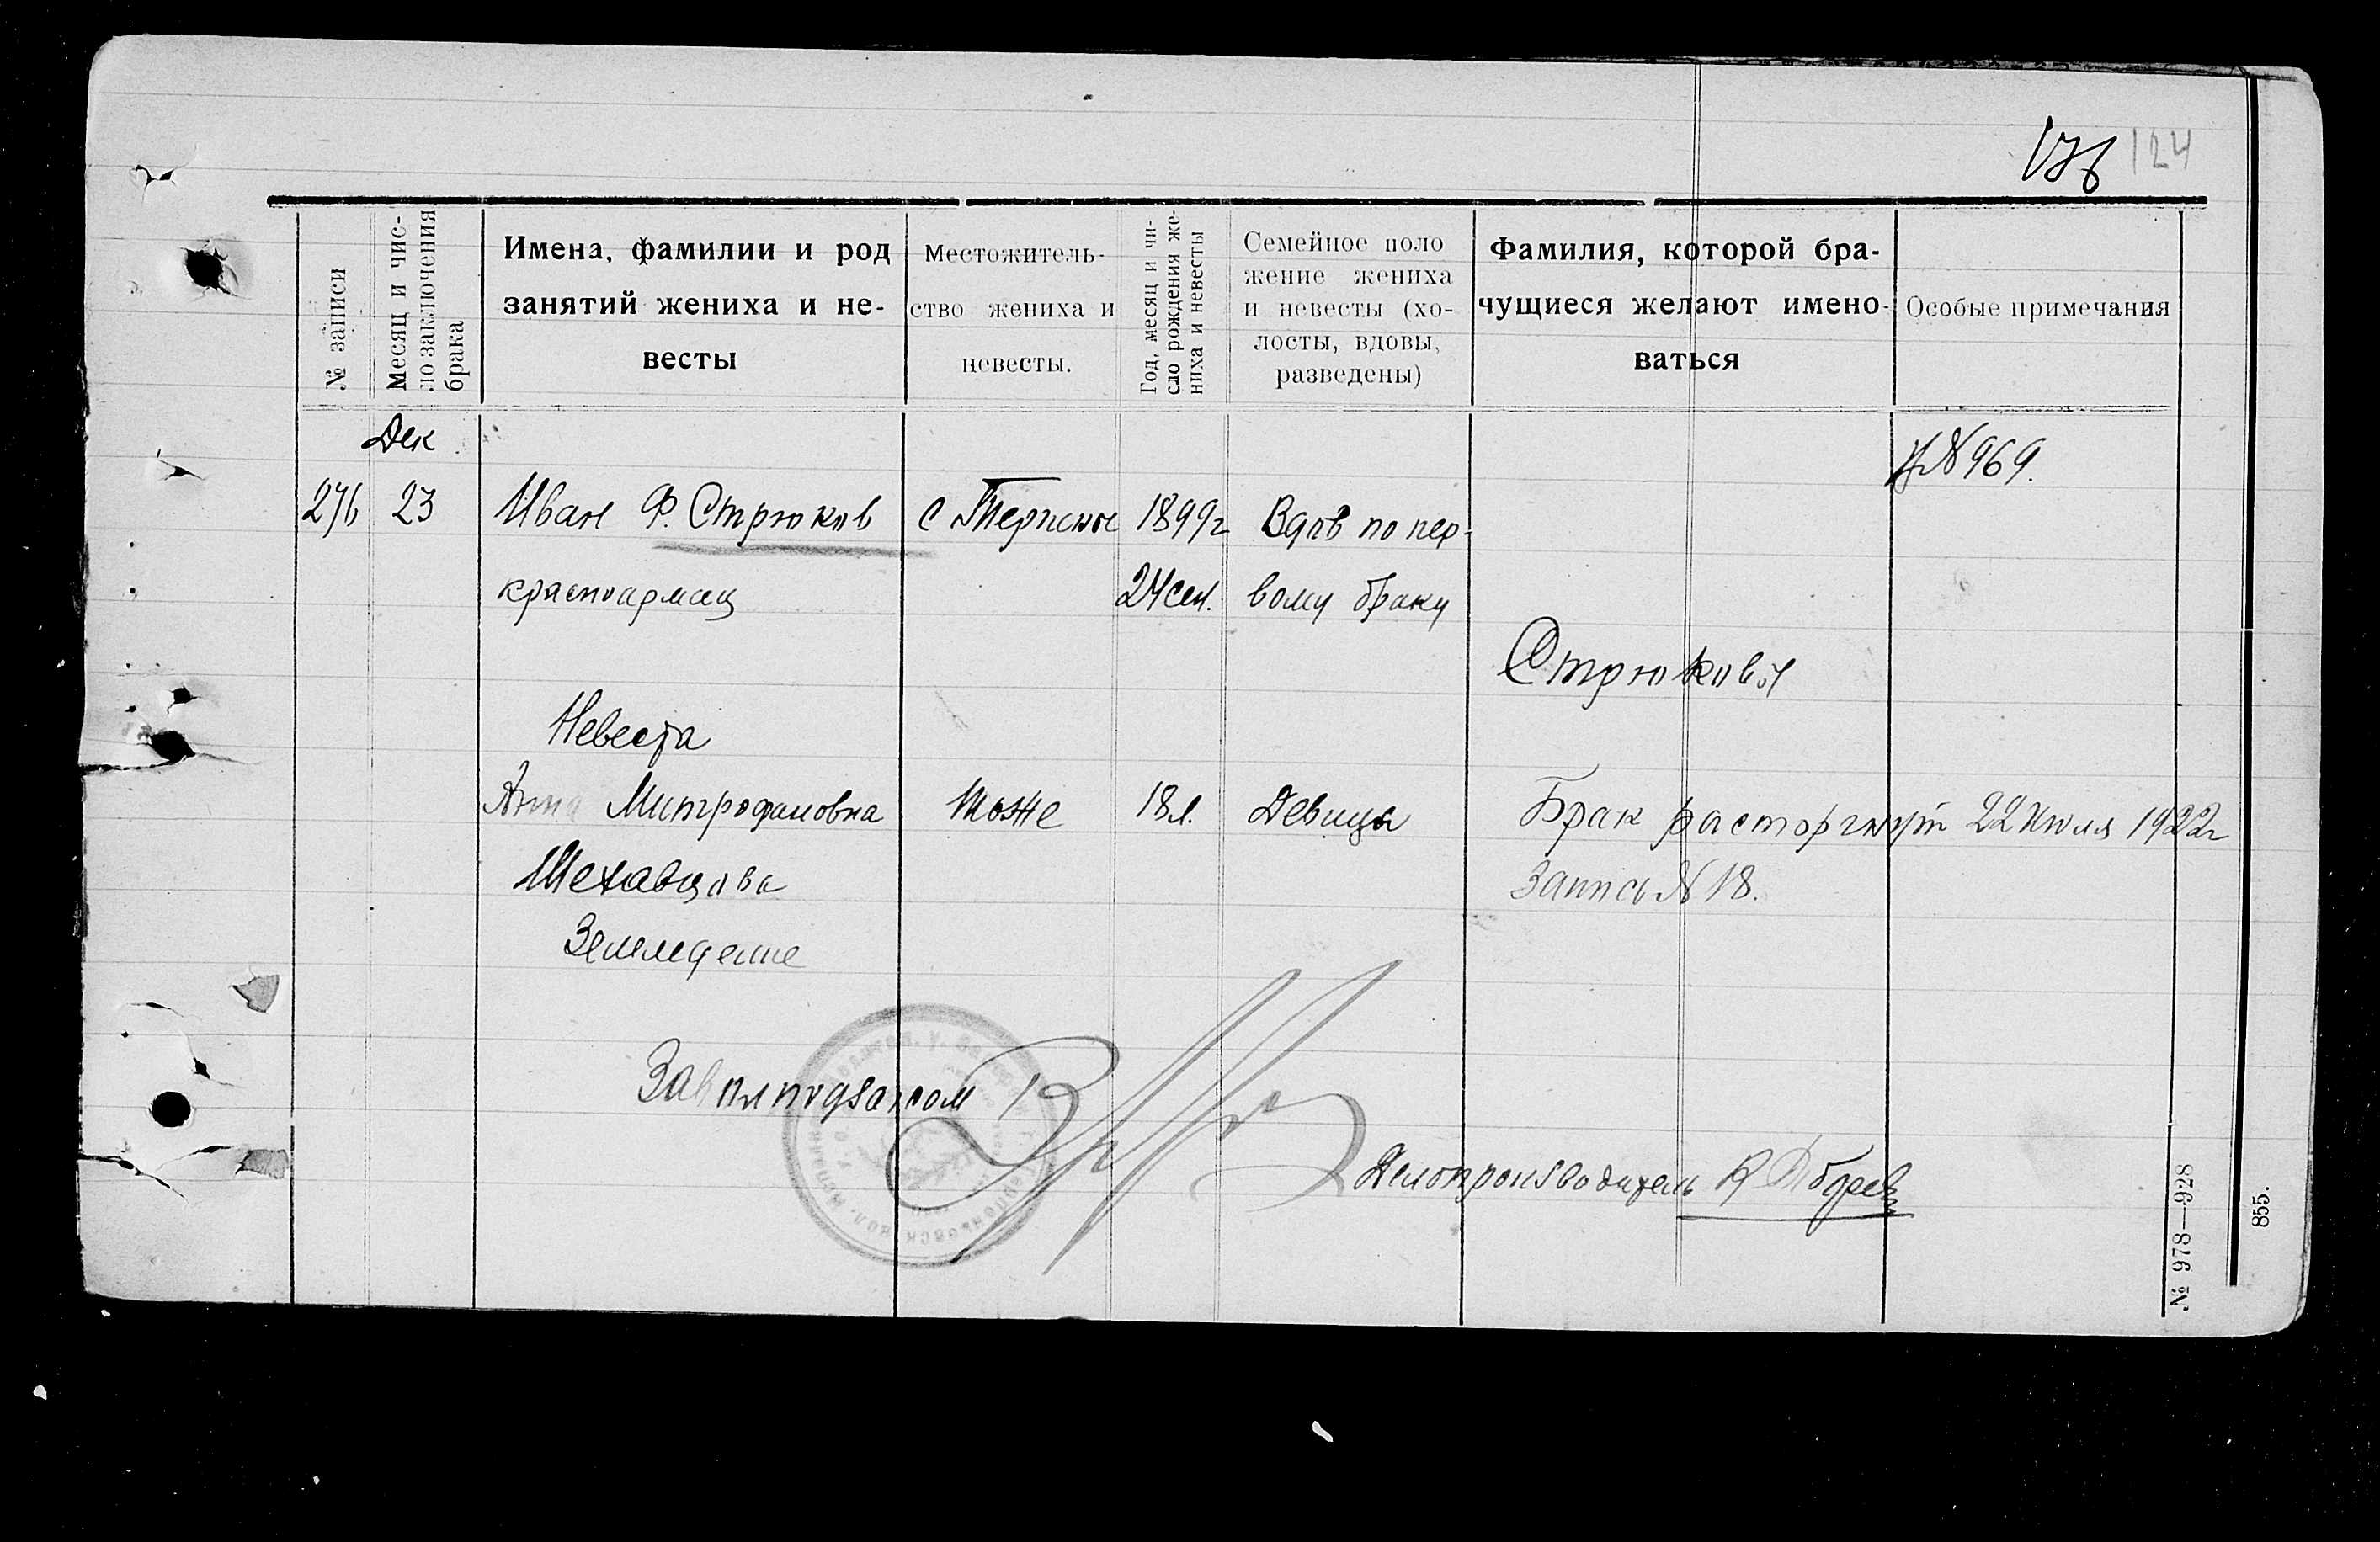 176 124
№ записи
Месяц и чис-
ло заключения
брака
Имена, фамилии и род
занятий жениха и не-
весты
Местожитель-
ство жениха и
невесты.
Год, месяц и чи-
сло рождения же-
ниха и невесты
Семейное поло
жение жениха
и невесты (хо-
лосты, вдовы,
разведены)
Фамилия, которой бра-
чущиеся желают имено-
ваться
Особые примечания
Дек
№ 969.
276 23 Иван Ф. Стрюков с 1899г Вдов по пер-
красноармац 24 сен. вому браку
Стрюковы
Невеста
Анна Митрофановна тоже 18 л. Девица Брак расторгнут 22 июля 1922г
Запись N 18.
Земледелие
Делопроизводитель
№ 978—928
855.